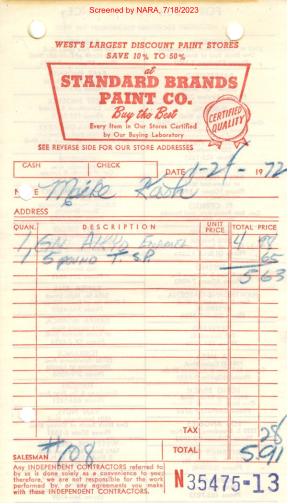 Screened by NARA, 7/18/2023
WEST'S LARGEST DISCOUNT PAINT STORES
SAVE 10% TO 50%
at
STANDARD BRANDS
PAINT CO.
Buy the Best
Every Item in Our Stores Certified
by Our Buying Laboratory
CERTIFIED QUALITY
SEE REVERSE SIDE FOR OUR STORE ADDRESSES
CASH CHECK DATE 1-21- 1972
NAME
ADDRESS
QUAN. DESCRIPTION UNIT PRICE TOTAL PRICE
1 Gal Alkyd Enamel 4 98
1 5 pound T.S.P. 65
5 63
TAX 28
SALESMAN #108 TOTAL 5.91
Any INDEPENDENT CONTRACTORS referred to
by us is done solely as a convenience to you;
therefore, we are not responsible for the work
performed by, or any agreements you make
with these INDEPENDENT CONTRACTORS.
N 35475-13